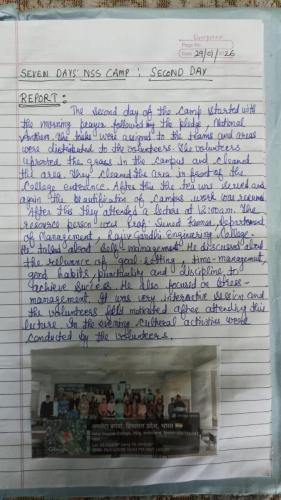 Page No.
Date 29/01/2026
SEVEN DAYS' NSS CAMP : SECOND DAY
REPORT:
The second day of the camp started with
the morning prayer followed by the pledge, National
Anthem. The tasks were assigned to the teams and areas
were distributed to the volunteers. The volunteers
uprooted the grass in the campus and cleaned
the area. They cleaned the area in front of the
College enterance. After this the tea was served and
again the beautification of campus work was resumed
After this they attended a lecture at 12:00 am. The
resource person was Prof. Kumar, Department
of Management, Rajiv Gandhi Engineering College.
He talked about Self management. He discussed about
the relevance of goal-setting, time-management,
good habits, punctuality and discipline, to
achieve success. He also focused on stress-
management. It was very interactive session and
the volunteers felt motivated after attending this
lecture. In the evening cultural activities were
conducted by the volunteers.
हिमाचल प्रदेश, भारत
Google